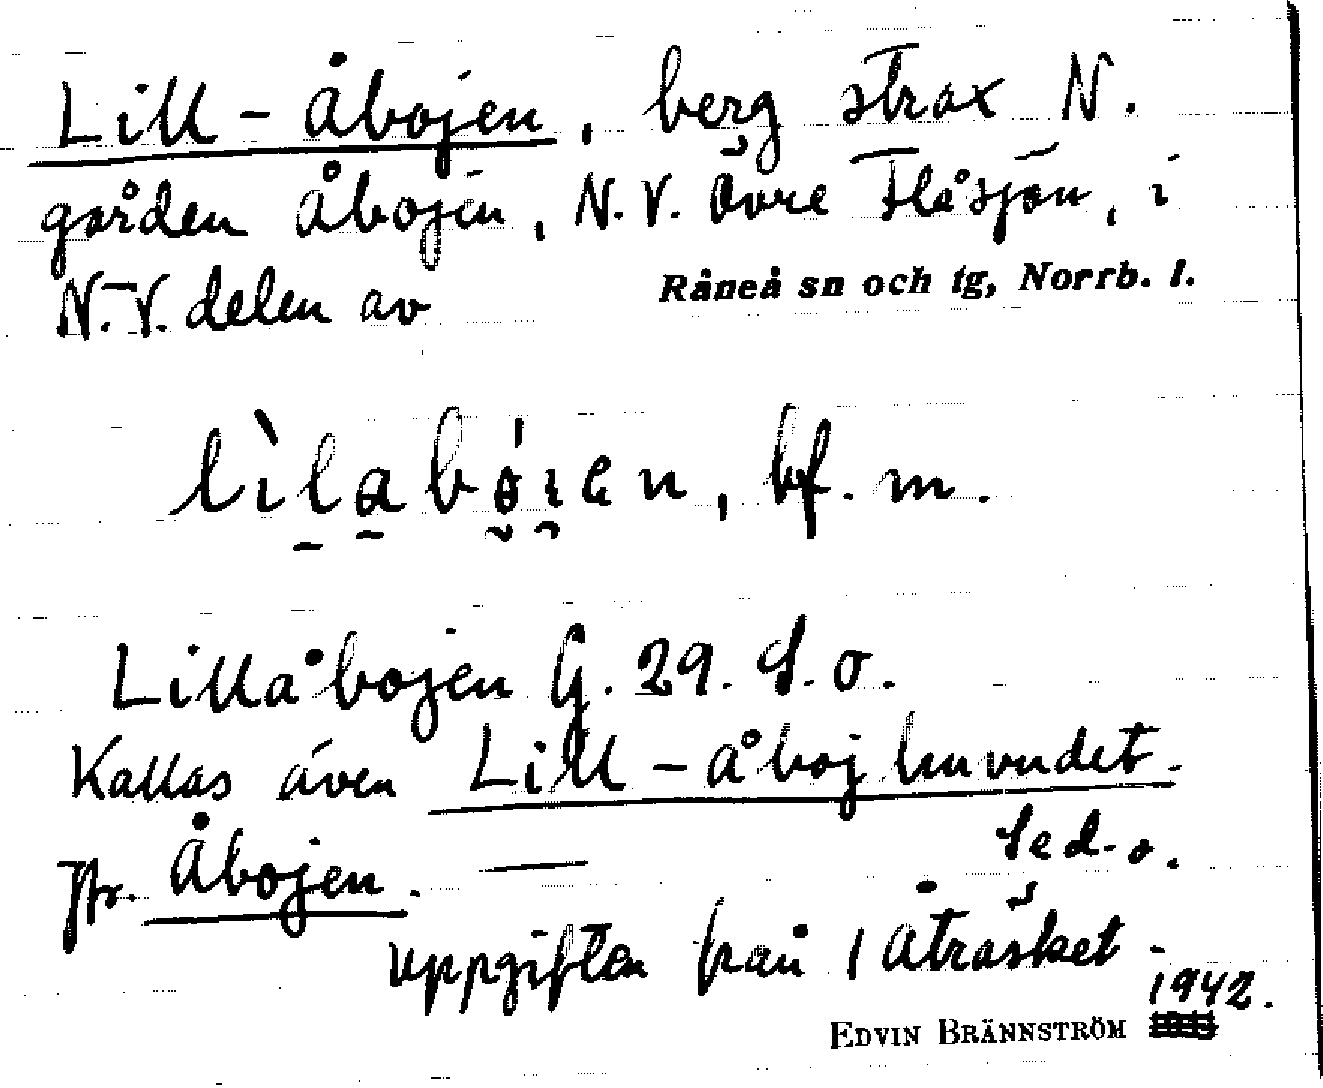 Lill-Åbojen, berg strax N.
gården Åbojen, N.V. Övre Flåsjön, i
N.V. delen av Råneå sn och tg, Norrb. l.
lìlabǿi̯en, bf. m.
Lillåbojen G. 29. S.o.
Kallas även Lill-åbojhuvudet.
Jfr. Åbojen. — Se d.o.
Uppgiften från 1 Åträsket -
1942.
EDVIN BRÄNNSTRÖM